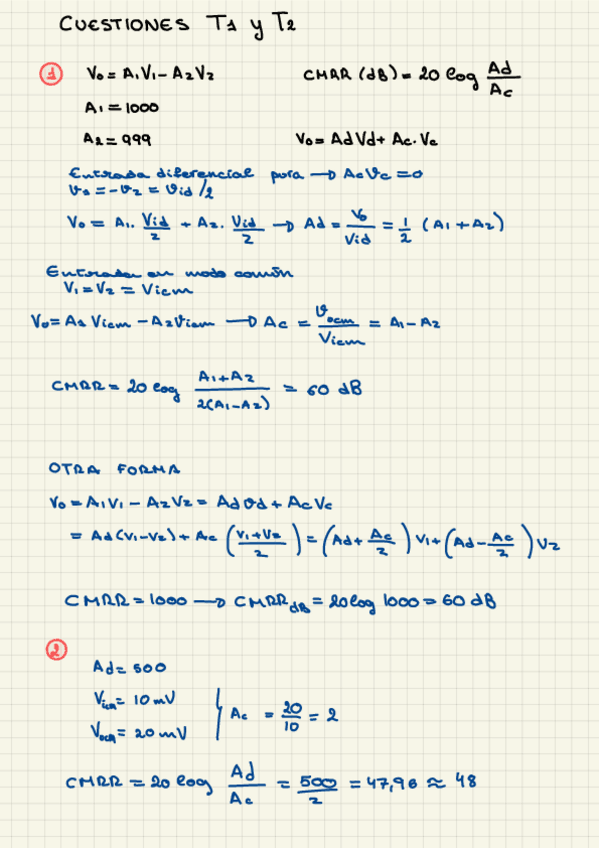 CUESTIONES T1 y T2
① V₀ = A₁V₁ - A₂V₂    CMRR (dB) = 20 log Ad/Ac
A₁ = 1000
A₂ = 999    V₀ = Ad Vd + Ac · Vc
Entrada diferencial pura → AcVc = 0
v₁ = -v₂ = vid/2
V₀ = A₁ · Vid/2 + A₂ · Vid/2 → Ad = V₀/Vid = 1/2 (A₁ + A₂)
Entrada en modo común
V₁ = V₂ = Vicm
V₀ = A₁ Vicm - A₂ Vicm → Ac = Vocm/Vicm = A₁ - A₂
CMRR = 20 log (A₁+A₂)/(2(A₁-A₂)) = 60 dB
OTRA FORMA
V₀ = A₁V₁ - A₂V₂ = Ad Vd + AcVc
= Ad (V₁-V₂) + Ac ((V₁+V₂)/2) = (Ad + Ac/2) V₁ + (Ad - Ac/2) V₂
CMRR = 1000 → CMRR dB = 20 log 1000 = 60 dB
②
Ad = 500
Vicm = 10 mV
Vocm = 20 mV    Ac = 20/10 = 2
CMRR = 20 log Ad/Ac = 500/2 = 47,96 ≈ 48